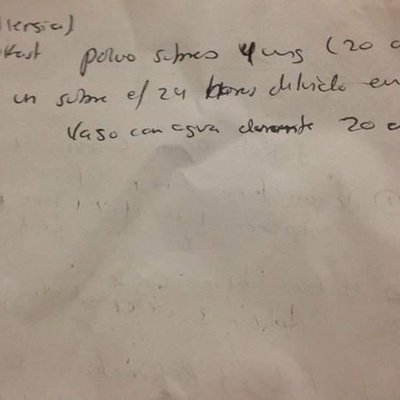 polvo sobres 4 mg (20
un sobre c/ 24 horas diluido en
Vaso con agua durante 20